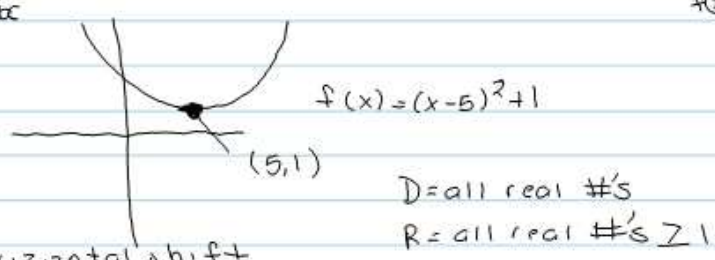 f(x)=(x-5)²+1
(5,1)
D=all real #'s
R= all real #'s ≥ 1
shift